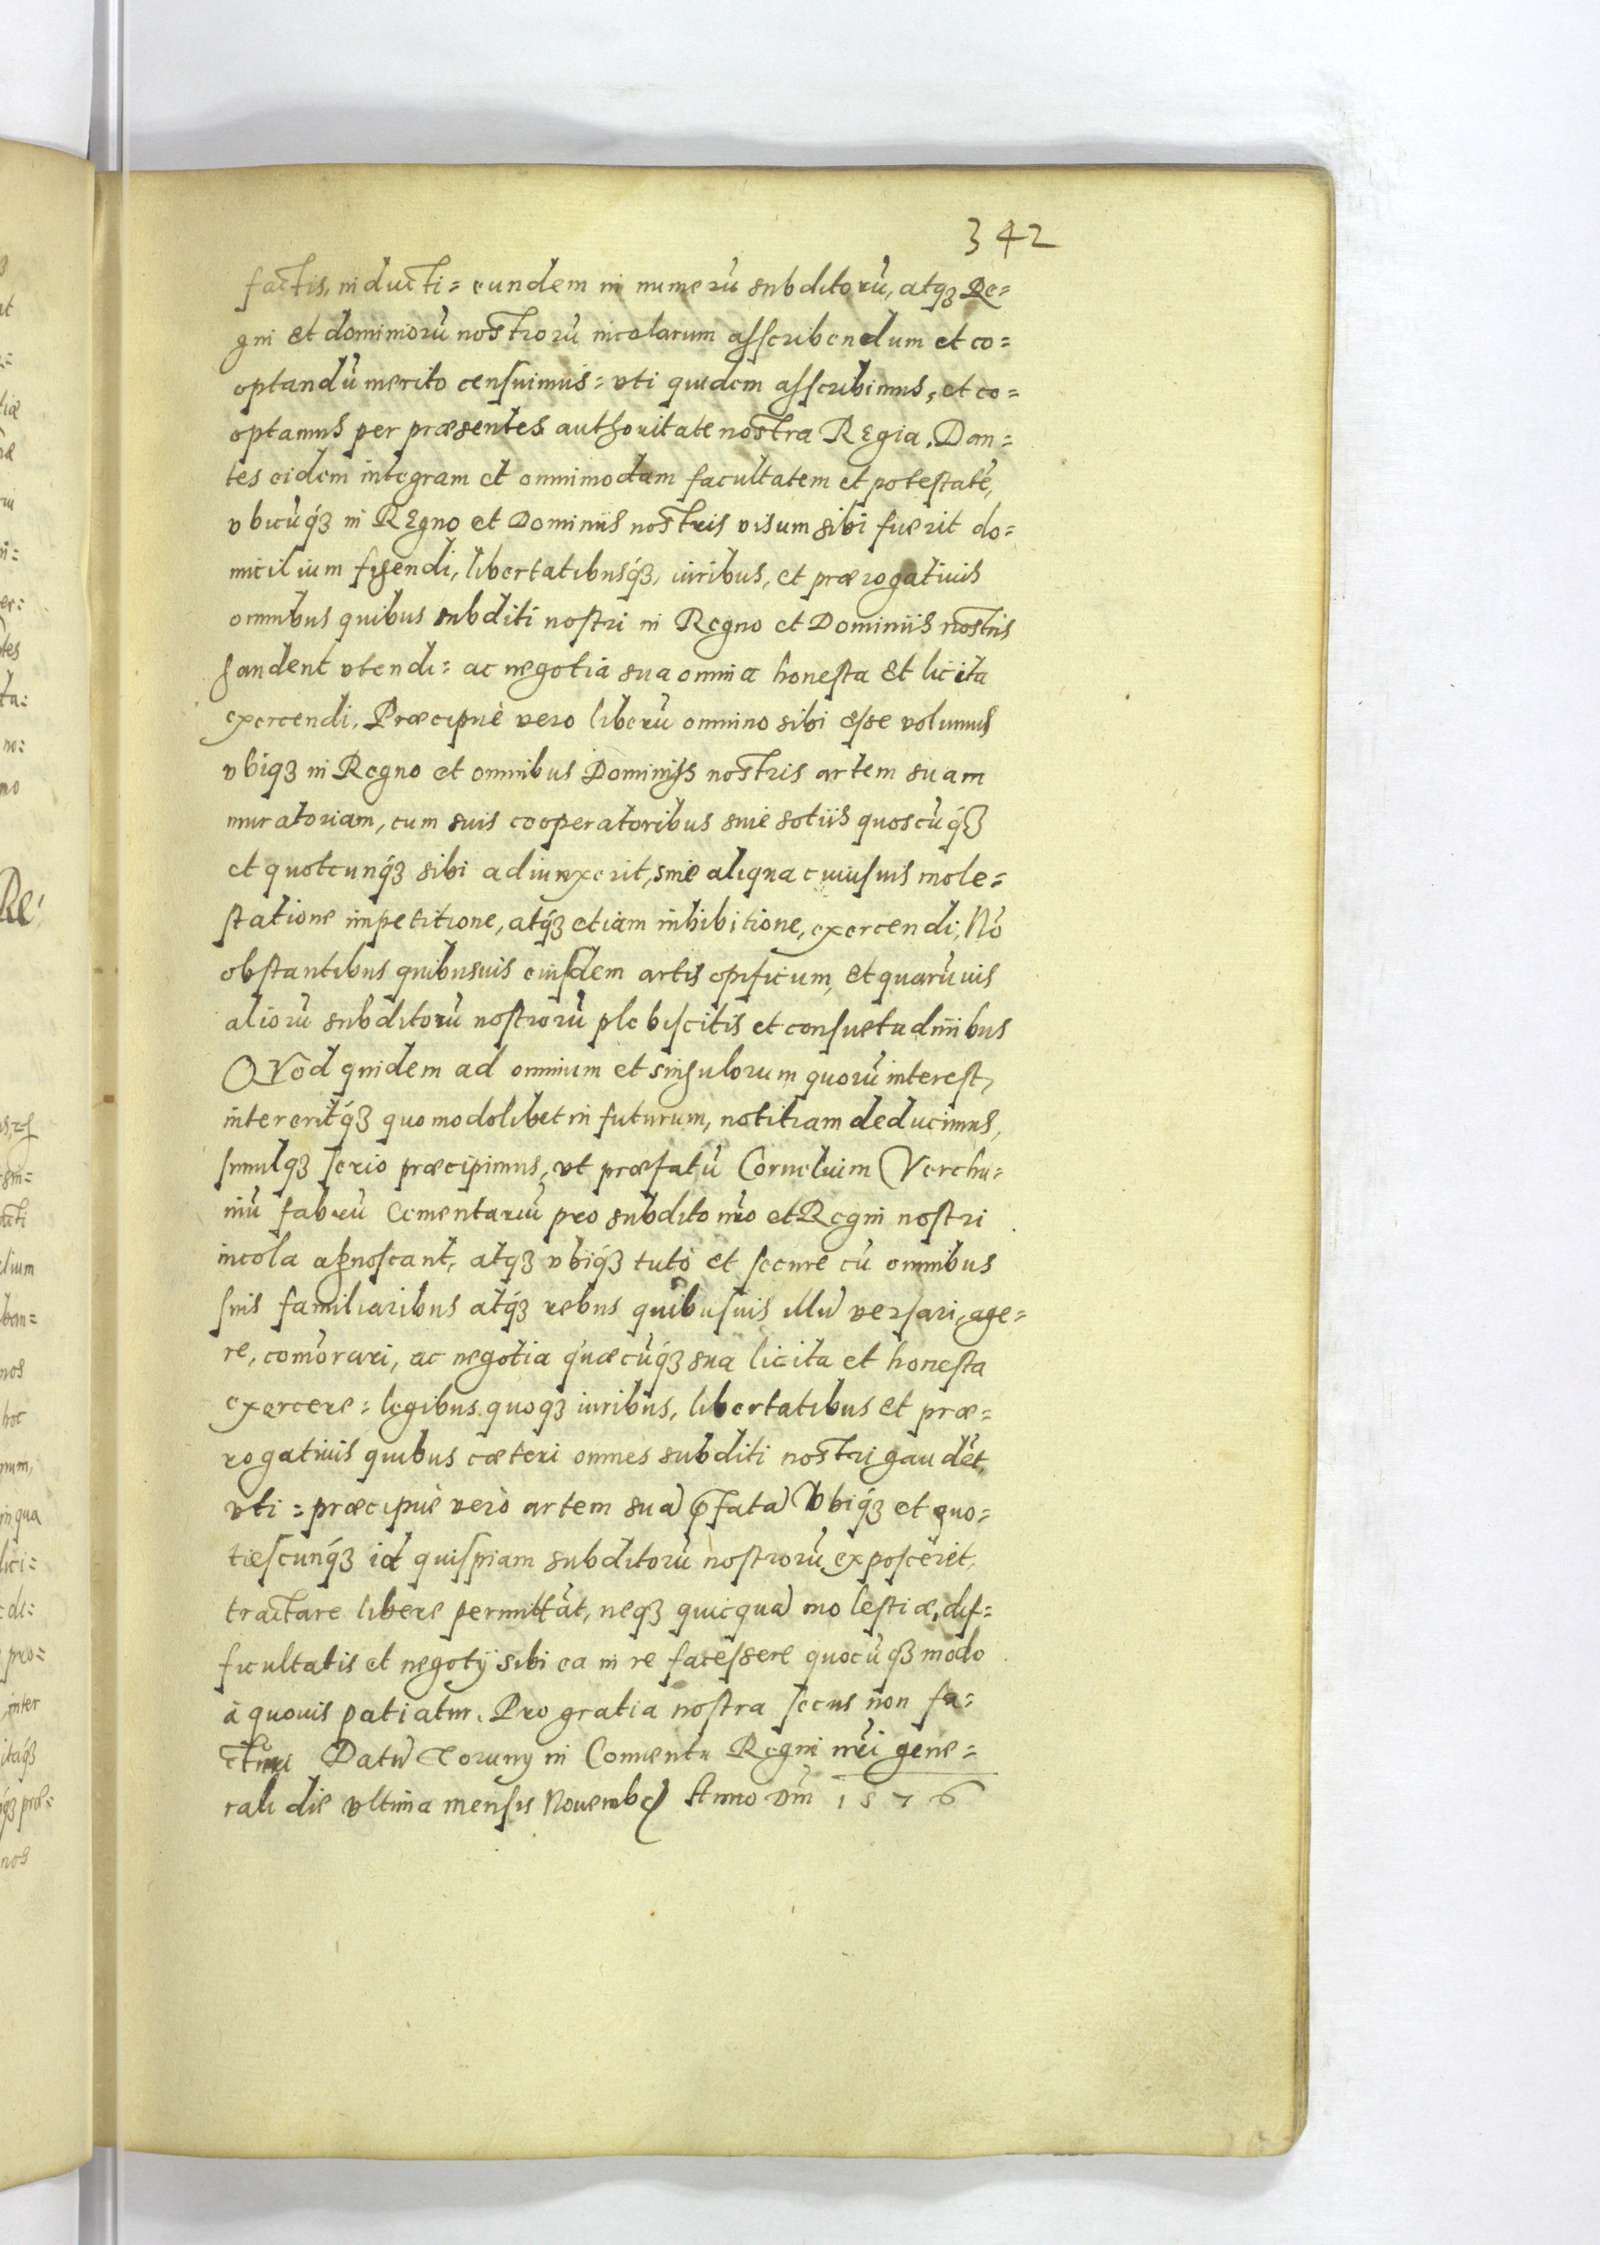 342
factis, inducti= eundem in numerū subditorū, atqꝫ Re=
gni et dominiorū nostrorū incolarum asscribendum et co=
optandū merito censuimus= vti quidem asscribimus, et co=
optamus per præsentes authoritate nostra Regia. Dan=
tes eidem integram et omnimodam facultatem et potestatē,
vbicūqꝫ in Regno et Dominiis nostris visum sibi fuerit do=
micilium figendi, libertatibusqꝫ, iuribus, et prærogatiuis
omnibus quibus subditi nostri in Regno et Dominiis nostris
gaudent vtendi= ac negotia sua omnia honesta et licita
exercendi. Præcipuè vero liberū omnino sibi esse volumus
vbiqꝫ in Regno et omnibus Dominijs nostris artem suam
muratoriam, cum suis cooperatoribus siue sotiis quoscūqꝫ
et quotcunqꝫ sibi adiunxerit, sine aliqua cuiusuis mole=
statione impetitione, atqꝫ etiam inhibitione, exercendi, Nō
obstantibus quibusuis eiusdem artis opificum, et quarūuis
aliorū subditorū nostrorū plebiscitis et consuetudinibus
QVod quidem ad omnium et singulorum quorū interest,
intereritqꝫ quomodolibet in futurum, notitiam deducimus,
simulqꝫ serio præcipimus, vt præfatū Cornelium Verchu=
niū fabrū Cementariū pro subdito nr̄o et Regni nostri
incola agnoscant, atqꝫ vbiqꝫ tutò et secure cū omnibus
suis familiaribus atqꝫ rebus quibusuis illū versari, age=
re, com̄orari, ac negotia quæcūqꝫ sua licita et honesta
exercere= legibus quoqꝫ iuribus, libertatibus et præ=
rogatiuis quibus cæteri omnes subditi nostri gaudēt,
vti= præcipuè verò artem suā p̄fatā Vbiqꝫ et quo=
tiescunqꝫ id quispiam subditorū nostrorū exposcerit,
tractare libere permittāt, neqꝫ quicquā molestiæ, dif=
ficultatis et negotij sibi ea in re facessere quocūqꝫ modo
à quouis patiatur. Pro gratia nostra secus non fa=
cturi Datū Toruny in Conuentu Regni nr̄i gene=
rali die vltima mensis Nouembr̄ Anno Dn̄i 1576